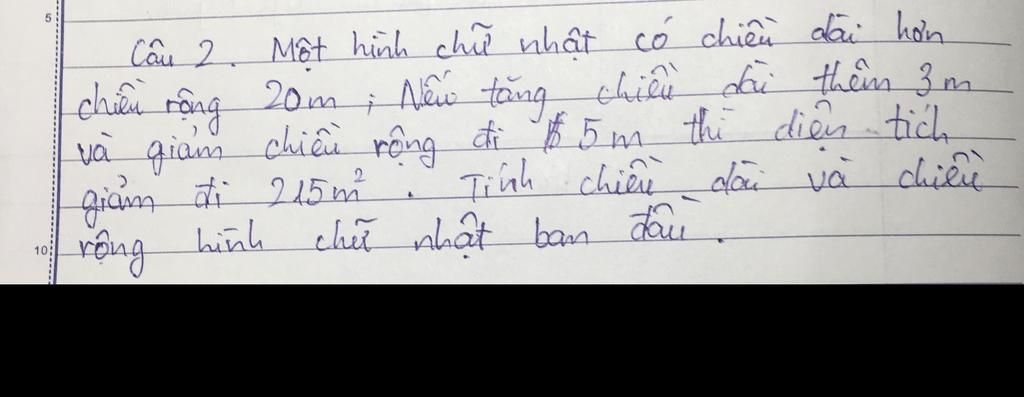 5
Câu 2. Một hình chữ nhật có chiều dài hơn
chiều rộng 20m ; Nếu tăng chiều dài thêm 3m
và giảm chiều rộng đi 5m thì diện tích
giảm đi 215m². Tính chiều dài và chiều
rộng hình chữ nhật ban đầu.
10